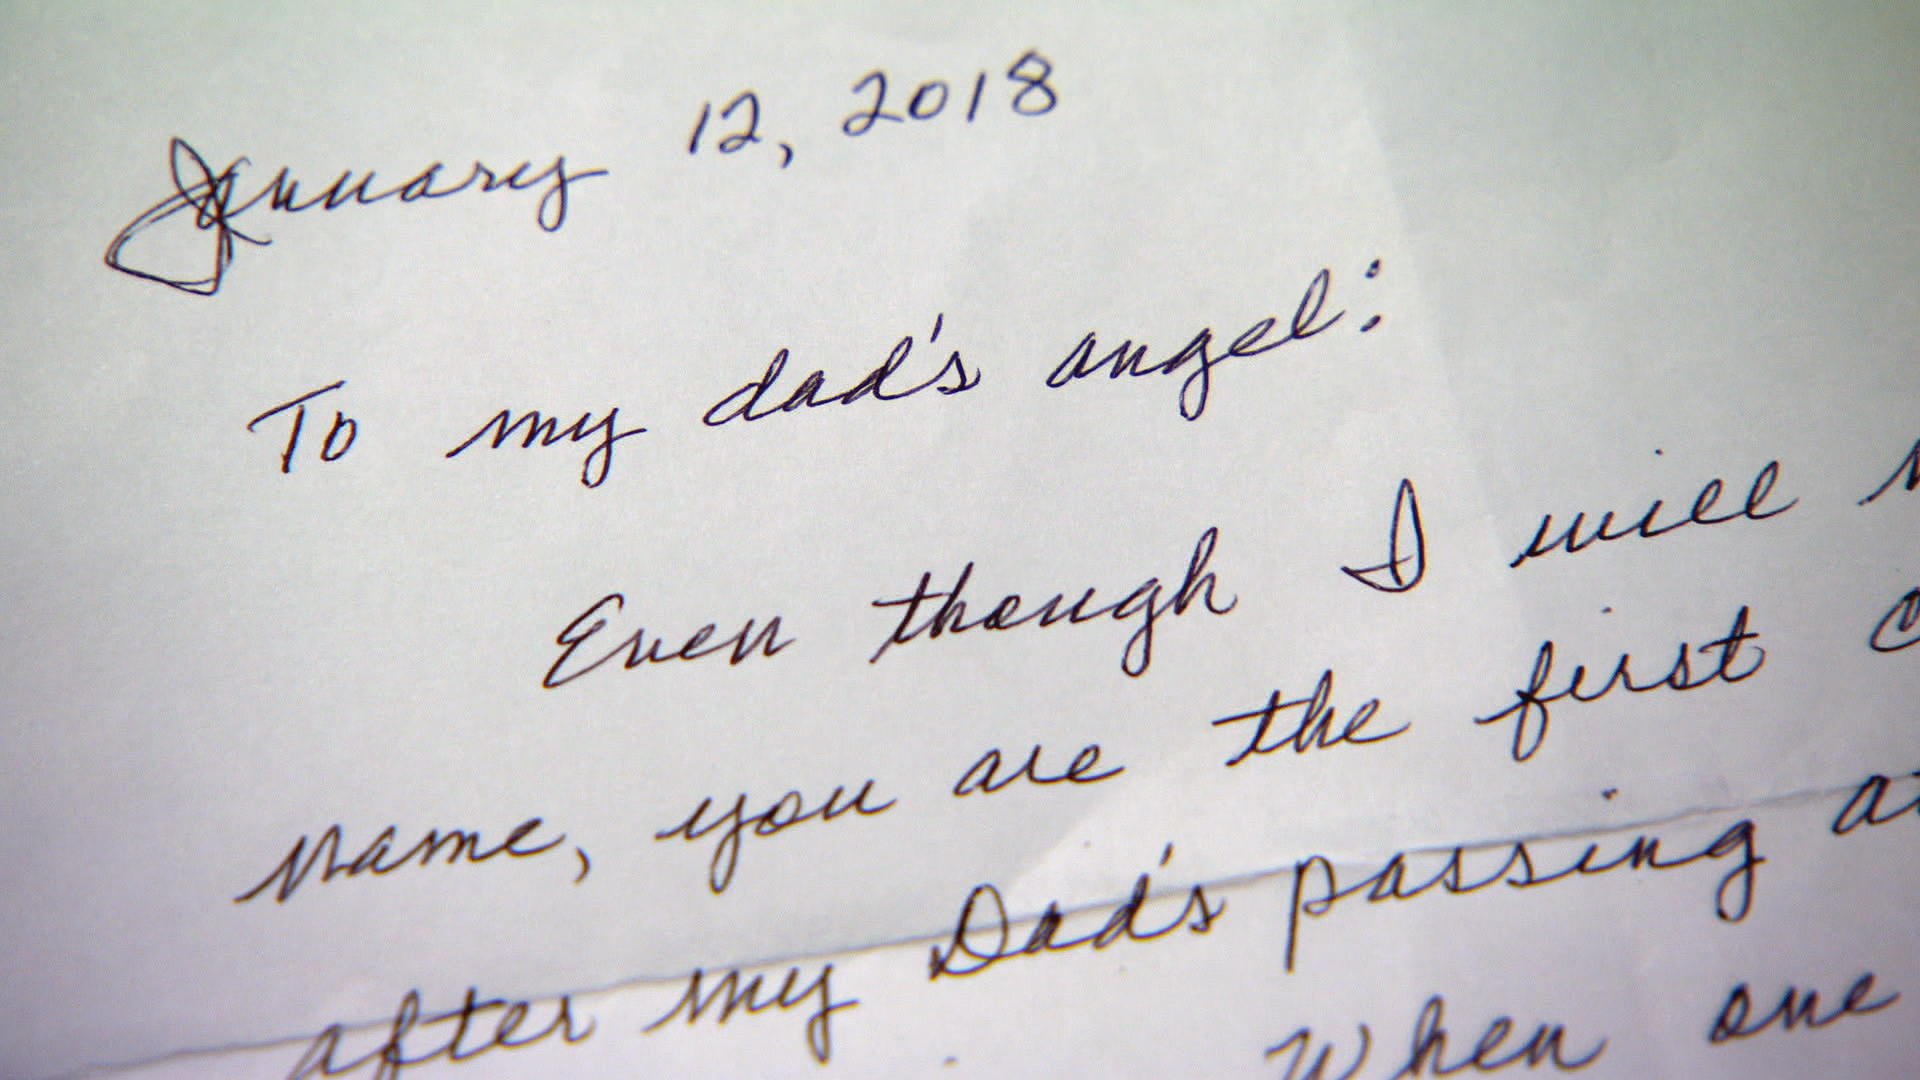 January 12, 2018
To my dad's angel:
Even though I will
name, you are the first
after my Dad's passing
When one